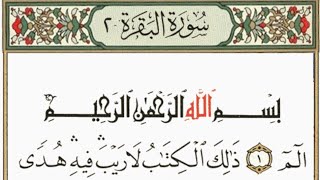 سُورَةُ البَقَرَةِ ٢
بِسْمِ اللَّهِ الرَّحْمَٰنِ الرَّحِيمِ
الٓمٓ ۝١ ذَٰلِكَ الْكِتَابُ لَا رَيْبَ ۛ فِيهِ ۛ هُدًى